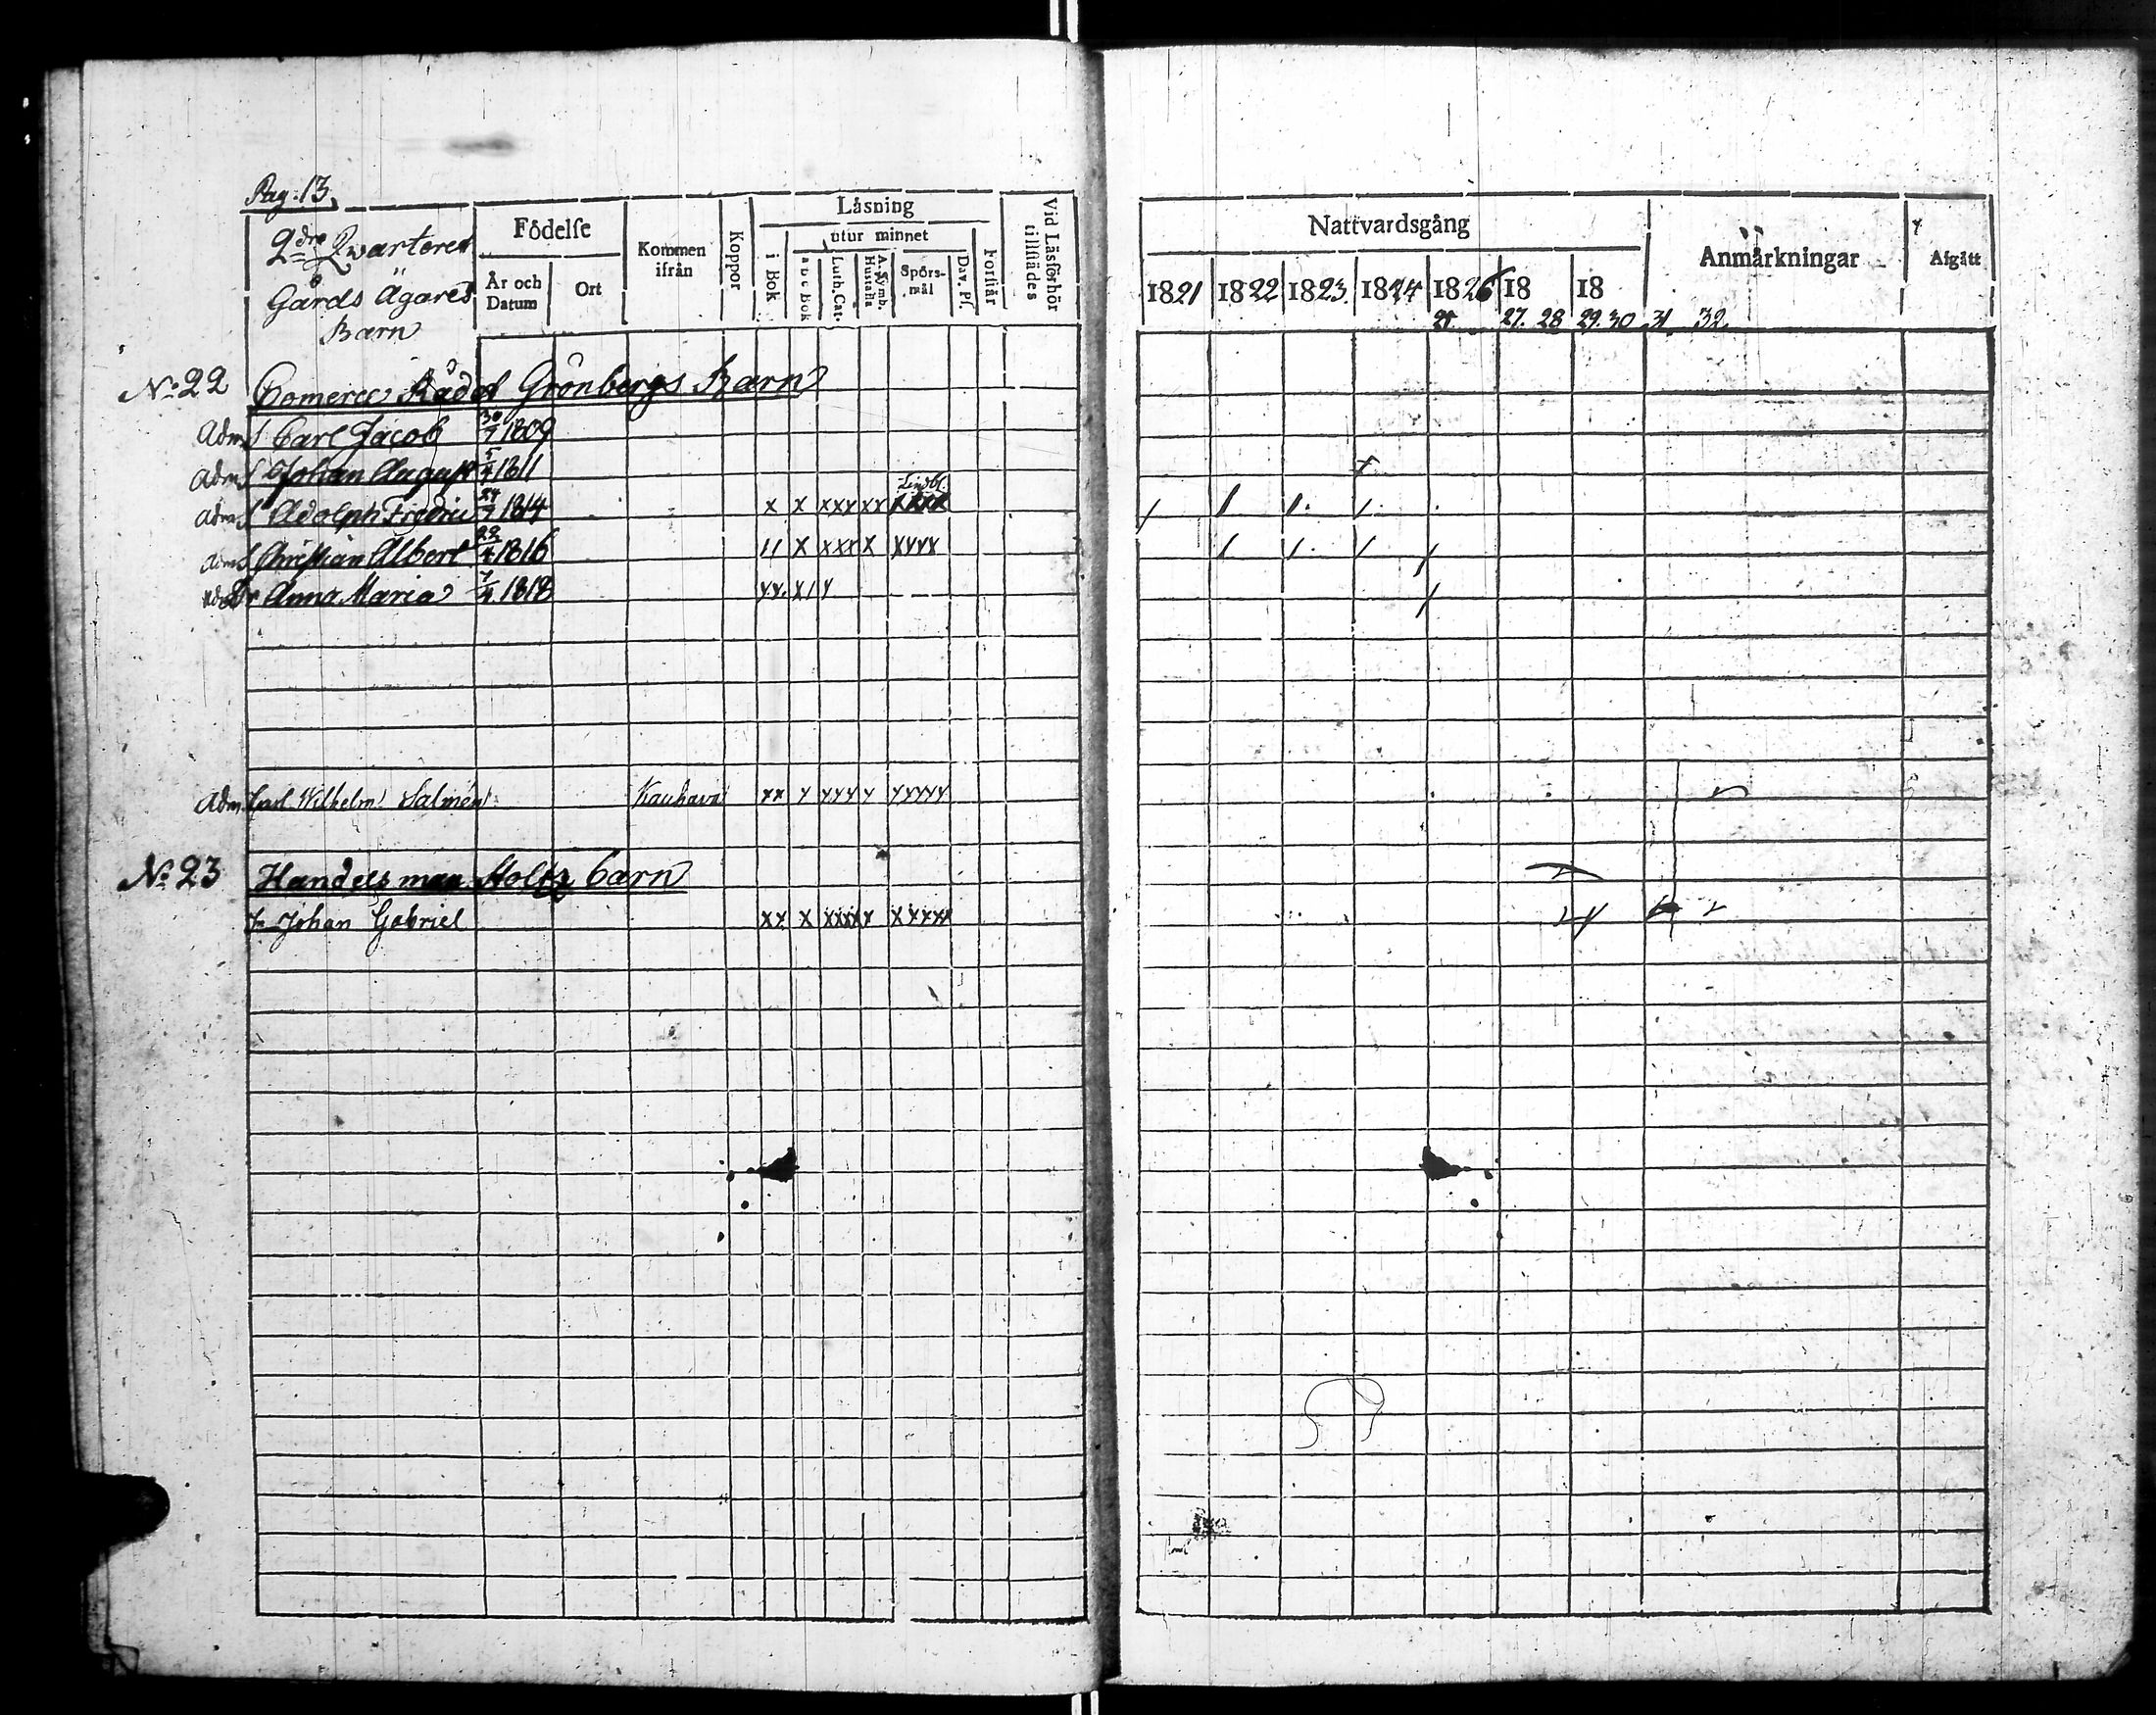 Pag. 13.
2dra Qwarteret
Gårds Ägares
Barn
Födelse
År och Datum
Ort
Kommen ifrån
Koppor
Läsning
i Bok
utur minnet
a b c Bok
Luth. Cat.
A. Symb. Hustafla
Spörs-mål
Dav. Ps.
Förstår
Vid Läsförhör tillstädes
Nattvardsgång
1821 1822 1823. 1824 1826 18 18
25 27. 28 29. 30 31 32.
Anmärkningar
Afgått
No 22 Comerce Rådet Grönbergs Barn
Adm. S Carl Jacob 30/7 1809
Adm. S Johan August 5/4 1811
Lindbl.
Adm. S Adolph Fredric 24/7 1814 x x xxx xx xxxx / / / /
Adm. S Christian Albert 22/4 1816 // x xxx x xxxx / / / /
Dr Anna Maria 4/4 1818 /
Adm. Carl Wilhelm Salmén Kauhava xx x xxx x xxxxx
No 23 Handelsman Holtz barn
Johan Gabriel xx x xxxxx xxxxx